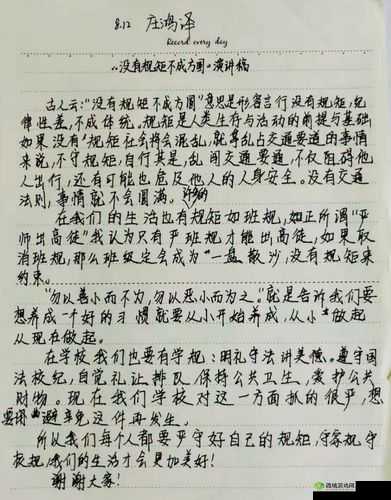 8.12 庄鸿译
Record every day
"没有规矩不成方圆"演讲稿
古人云:"没有规矩不成方圆"意思是形容言行没有规矩,纪
律性差,不成体统。规矩是人类生存与活动的前提与基础,
如果没有"规矩社会将会混乱,就拿乱占交通要道的事情
来说,不守规矩,自行其是,乱闯交通要道,不仅阻碍他
人出行,还有可能也危及他人的人身安全。没有交通
法则,事情就不会圆满。
在我们的生活也有许多的规矩如班规,如正所谓"严
师出高徒"我认为只有严班规才能出高徒,如果取
消班规,那么班级定会成为"一盘散沙,没有规矩来
约束。
"勿以善小而不为,勿以恶小而为之。"就是告诉我们要
想养成一个好的习惯就要从小开始养成,从小做起
从现在做起。
在学校我们也要有学规:明礼守法讲美德。遵守国
法校纪,自觉礼让排队,保持公共卫生,爱护公共
财物。现在我们学校对这一方面抓的很严,想
要避免这件再发生。
所以我们每个人都要严守好自己的规矩,守家规,守
校规,我们的生活才会更加美好!
谢谢大家!